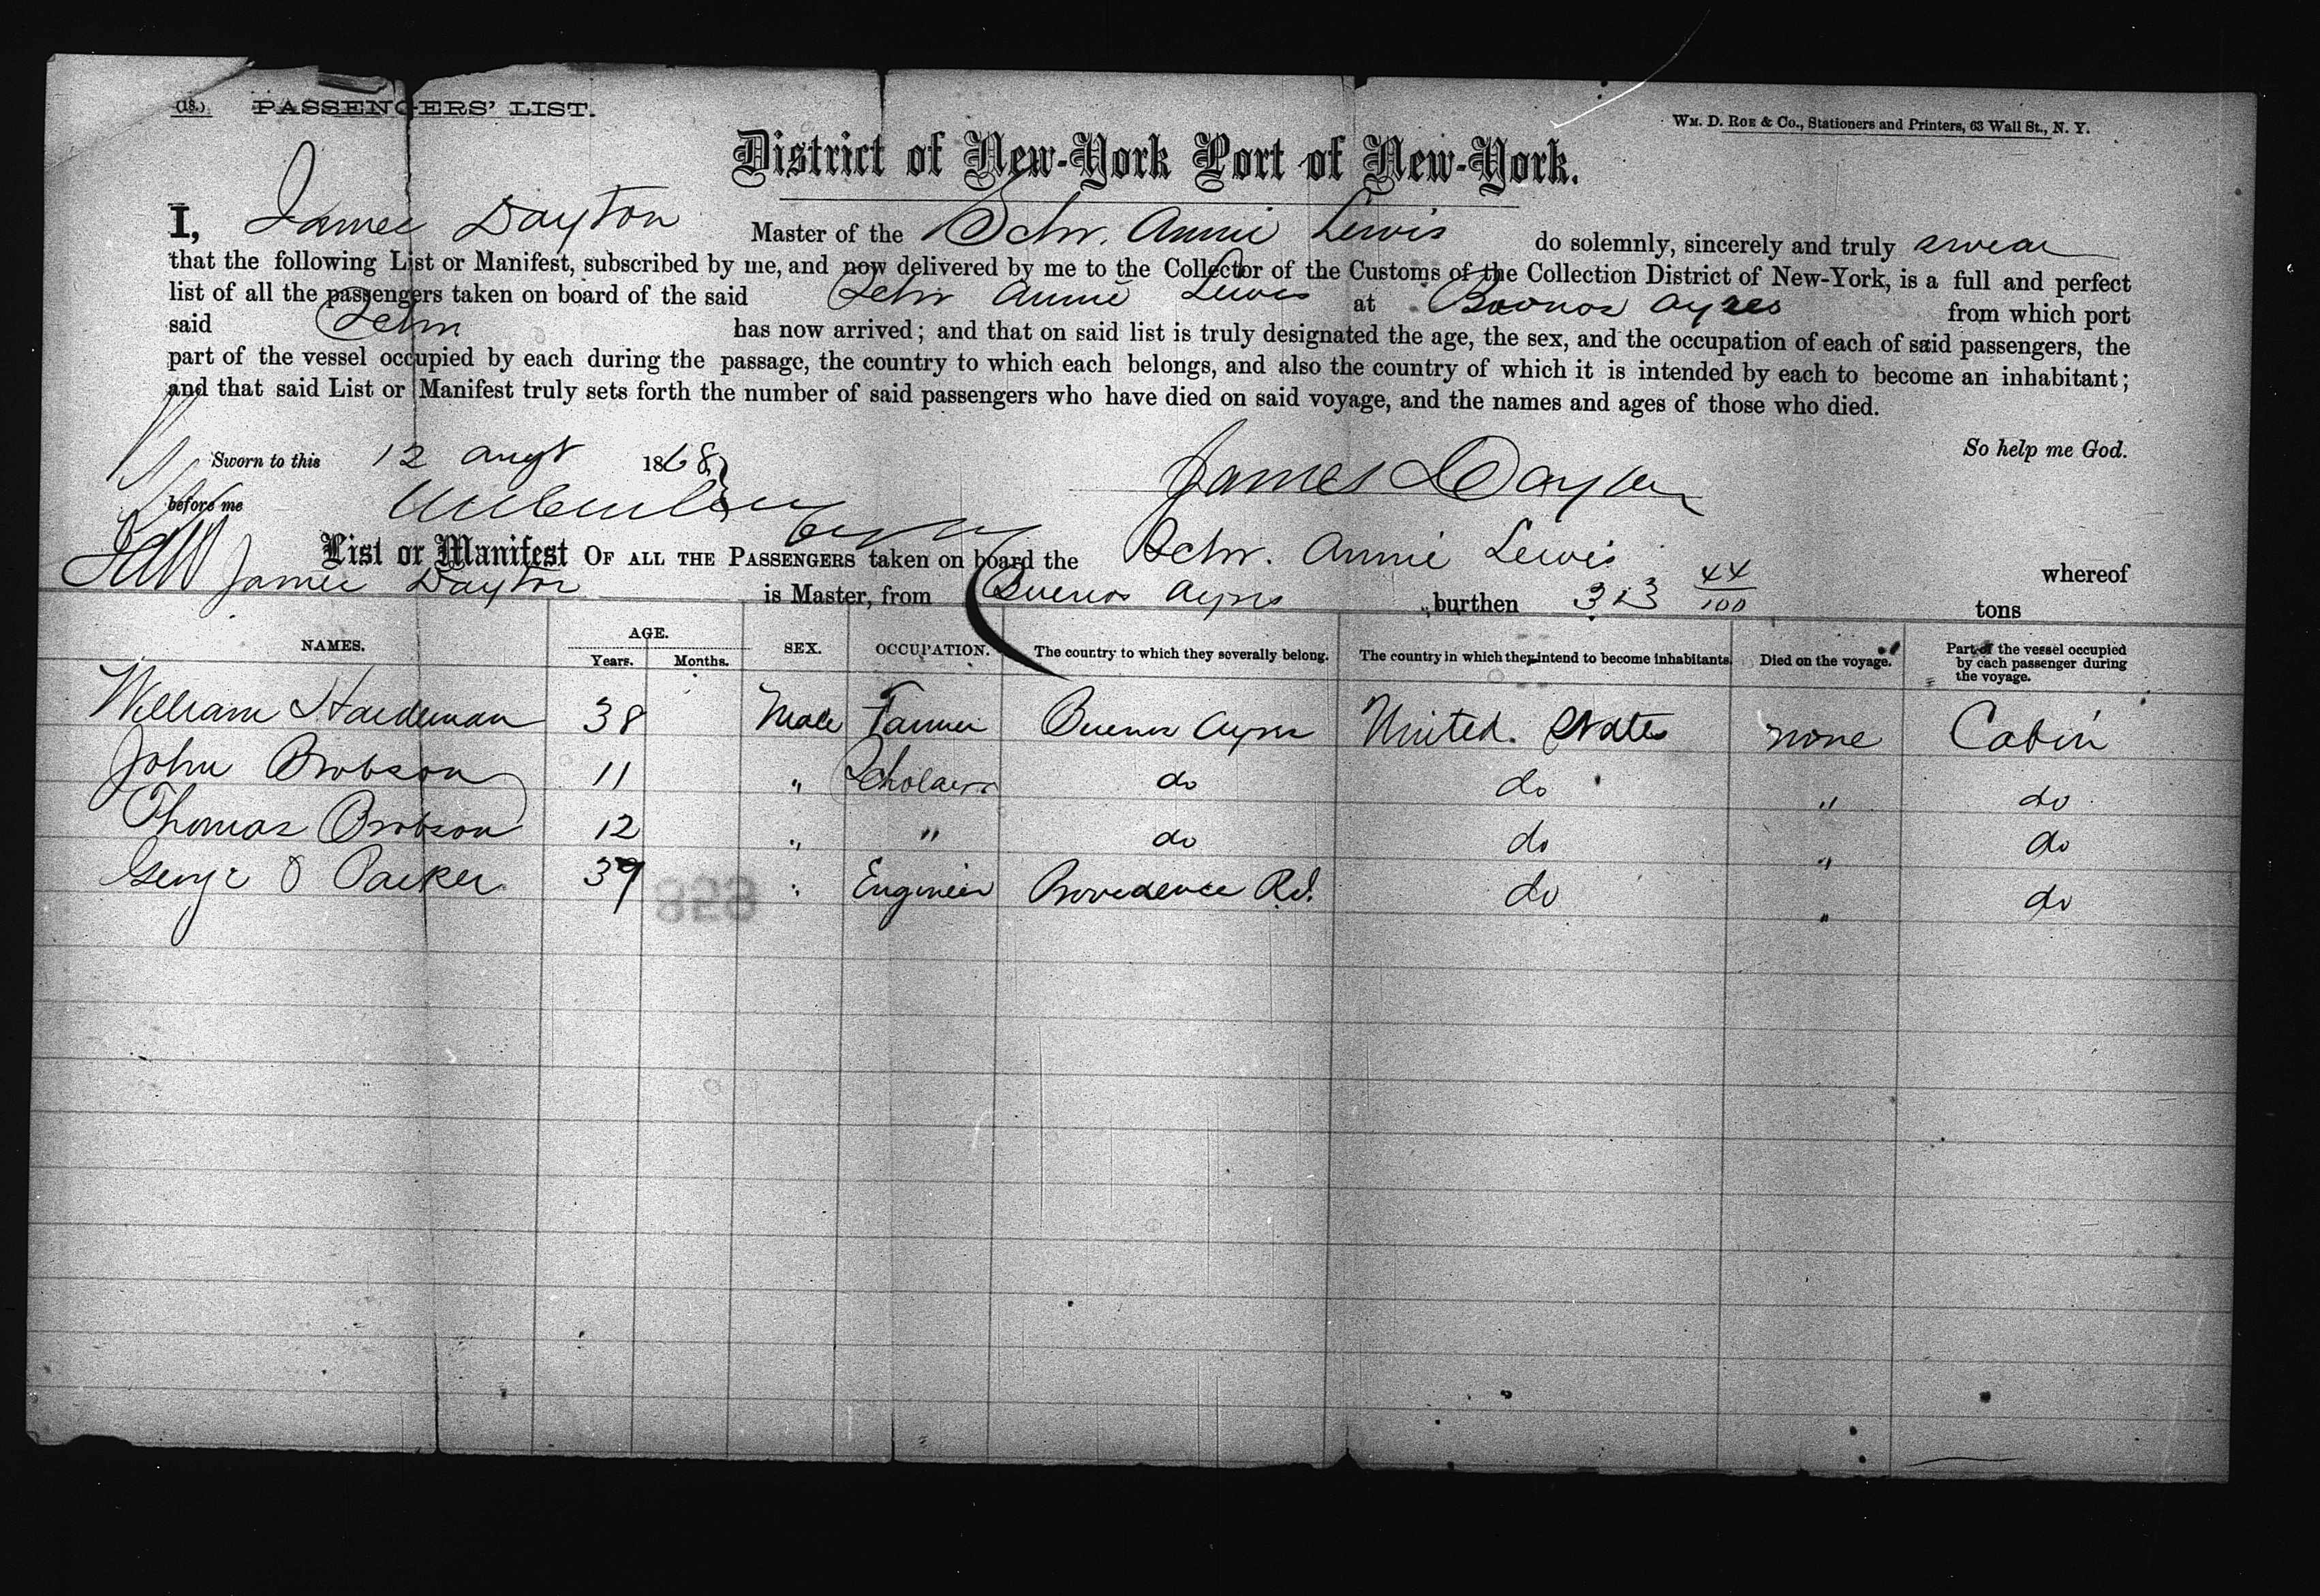 (18.) PASSENGERS' LIST.
Wm. D. Roe & Co., Stationers and Printers, 63 Wall St., N. Y.
District of New-York Port of New-York.
I, James Dayton Master of the Schr. Annie Lewis do solemnly, sincerely and truly swear
that the following List or Manifest, subscribed by me, and now delivered by me to the Collector of the Customs of the Collection District of New-York, is a full and perfect
list of all the passengers taken on board of the said Schr Annie Lewis at Buenos Ayres from which port
said Schr has now arrived; and that on said list is truly designated the age, the sex, and the occupation of each of said passengers, the
part of the vessel occupied by each during the passage, the country to which each belongs, and also the country of which it is intended by each to become an inhabitant;
and that said List or Manifest truly sets forth the number of said passengers who have died on said voyage, and the names and ages of those who died.
So help me God.
Sworn to this 12 Augt 1868
James Dayton
before me
List or Manifest OF ALL THE PASSENGERS taken on board the Schr. Annie Lewis whereof
James Dayton is Master, from Buenos Ayres burthen 313 44/100 tons
NAMES. AGE. Years. Months. SEX. OCCUPATION. The country to which they severally belong. The country in which they intend to become inhabitants. Died on the voyage. Part of the vessel occupied by each passenger during the voyage.
William Hardeman 38 Male Farmer Buenos Ayres United States none Cabin
John Brobson 11 " Scholars do do " do
Thomas Brobson 12 " " do do " do
George O Parker 39 " Engineer Providence R.I. do " do